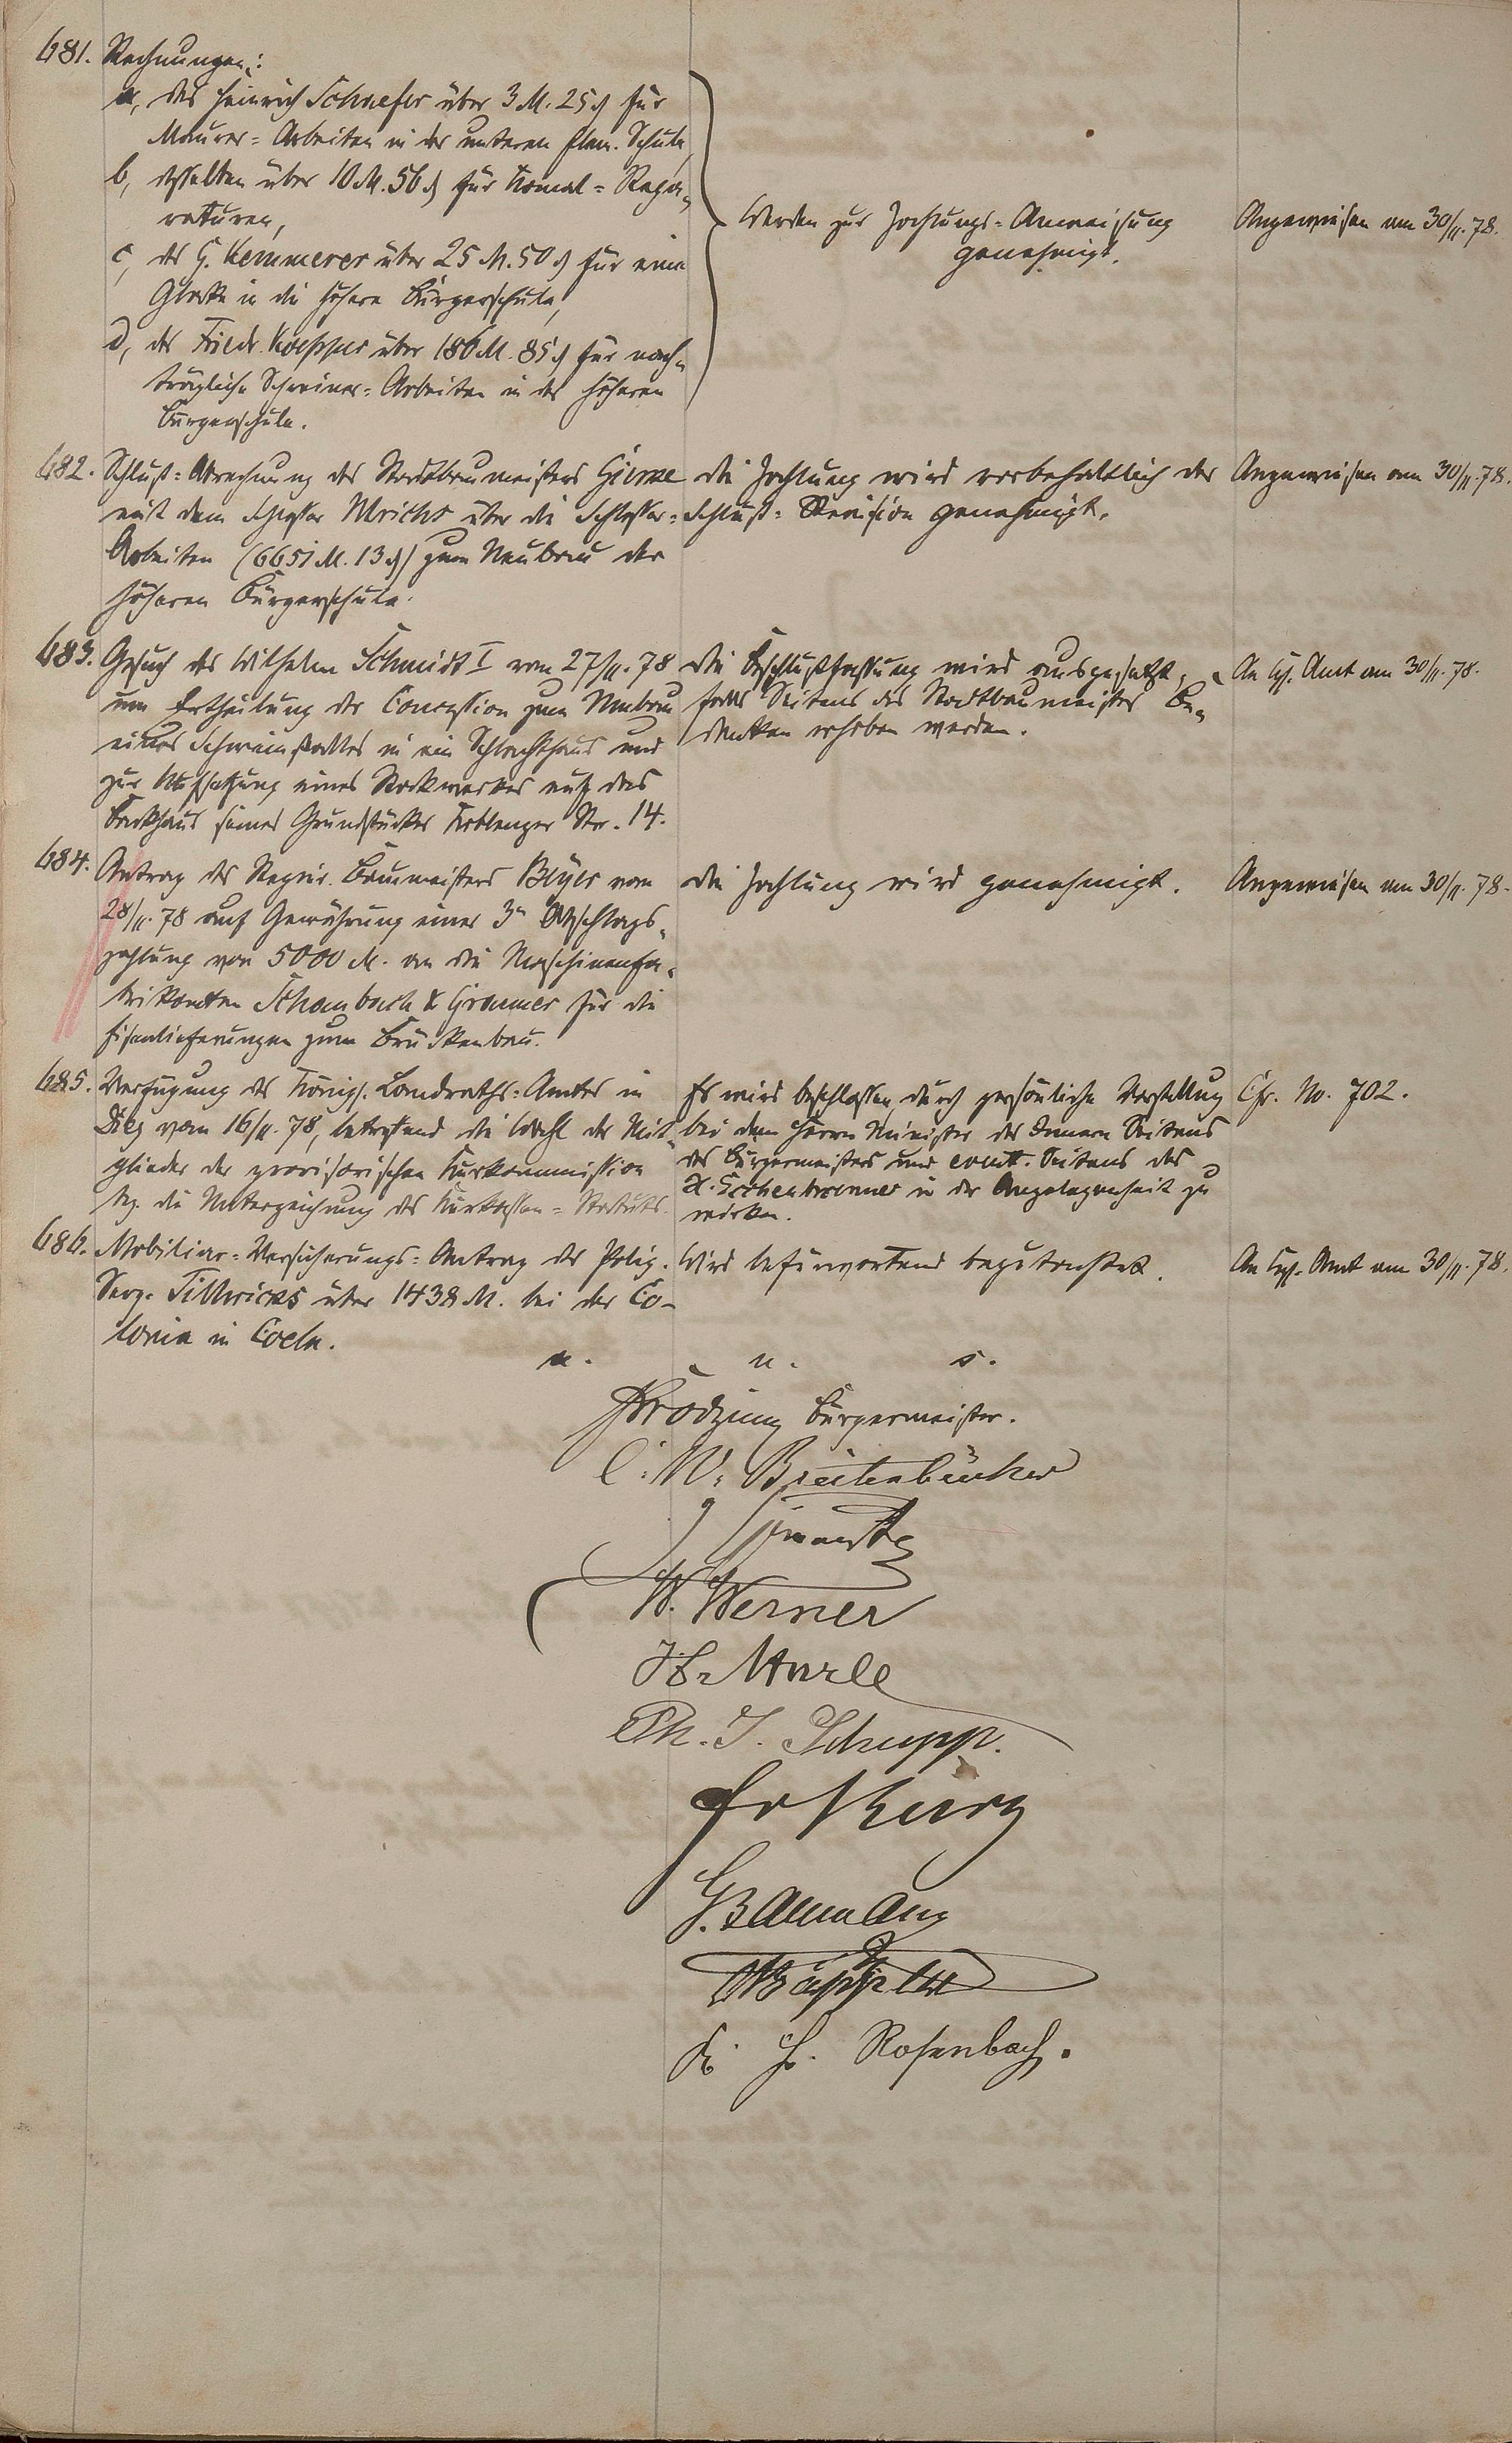 681. Rechnungen:
a, des Heinrich Schaefer über 3 M. 25 ₰ für
Maurer-Arbeiten in der unteren Elem. Schule,
b, desselben über 10 M. 56 ₰ für Kanal-Repa-
raturen,
c, des G. Kemmerer über 25 M. 50 ₰ für eine
Glocke in die höhere Bürgerschule,
d, des Friedr. Koepper über 186 M. 85 ₰ für nach-
trägliche Schreiner-Arbeiten in der höheren
Bürgerschule.
Werden zur Zahlungs-Anweisung
genehmigt.
Angewiesen am 30/11. 78.
682. Schluß-Abrechnung des Stadtbaumeisters Giesse
mit dem Schlosser Ulrichs über die Schlosser-
Arbeiten (6651 M. 13 ₰) zum Neubau der
höheren Bürgerschule.
Die Zahlung wird vorbehaltlich der
Schluß-Revision genehmigt.
Angewiesen am 30/11. 78.
683. Gesuch des Wilhelm Schmidt I vom 27/11. 78
um Ertheilung der Concession zum Umbau
eines Schweinstalles in ein Schlachthaus und
zur Aufsetzung eines Stockwerkes auf das
Backhaus seines Grundstückes Koblenzer Str. 14.
Die Beschlußfassung wird ausgesetzt,
falls Seitens des Stadtbaumeisters Be-
denken erhoben werden.
An Kgl. Amt am 30/11. 78.
684. Antrag des Regier. Baumeisters Beyer vom
28/11. 78 auf Gewährung einer 3n Abschlags-
zahlung von 5000 M. an die Maschinenfa-
brikanten Schambach & Gramer für die
Eisenlieferungen zum Brückenbau.
Die Zahlung wird genehmigt.
Angewiesen am 30/11. 78.
685. Verfügung des Königl. Landraths-Amtes in
Diez vom 16/11. 78, betreffend die Wahl der Mit-
glieder der provisorischen Kurkommission
bez. die Unterzeichnung des Kurkassen-Statuts.
Es wird beschlossen, durch persönliche Vorstellung
bei dem Herrn Minister des Innern Seitens
des Bürgermeisters und event. Seitens des
H. Gschenbrenner in der Angelegenheit zu
wirken.
Cfr. No. 702.
686. Mobiliar-Versicherungs-Antrag des Poliz.
Serg. Tillericks über 1438 M. bei der Co-
lonia in Coeln.
Wird befürwortend begutachtet.
An Kgl. Amt am 30/11. 78.
u. u. s.
Bürgermeister.
C. W. Breitenbücher
W. Werner
Ph. J. Schupp.
G. Baumann
H. Rosenbach.